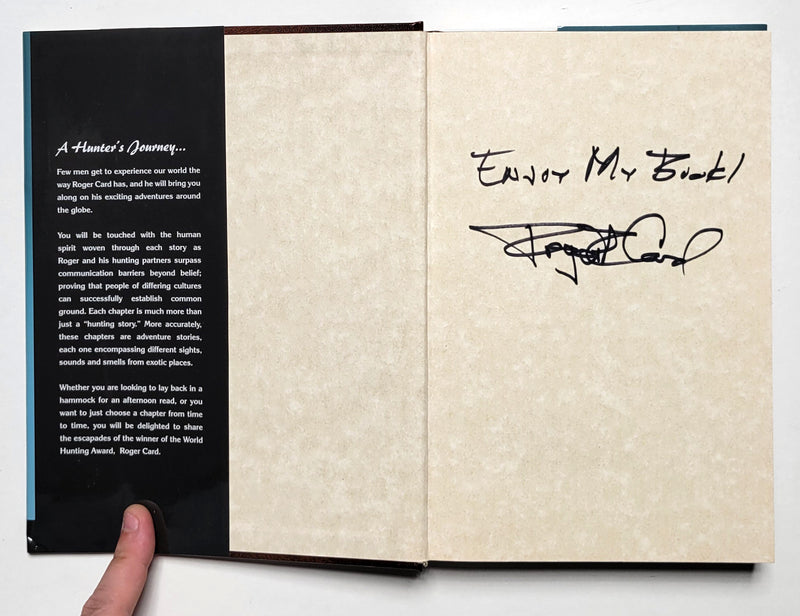 A Hunter's Journey...
Few men get to experience our world the
way Roger Card has, and he will bring you
along on his exciting adventures around
the globe.
You will be touched with the human
spirit woven through each story as
Roger and his hunting partners surpass
communication barriers beyond belief;
proving that people of differing cultures
can successfully establish common
ground. Each chapter is much more than
just a "hunting story." More accurately,
these chapters are adventure stories,
each one encompassing different sights,
sounds and smells from exotic places.
Whether you are looking to lay back in a
hammock for an afternoon read, or you
want to just choose a chapter from time
to time, you will be delighted to share
the escapades of the winner of the World
Hunting Award, Roger Card.
Enjoy My Book!
Roger Card